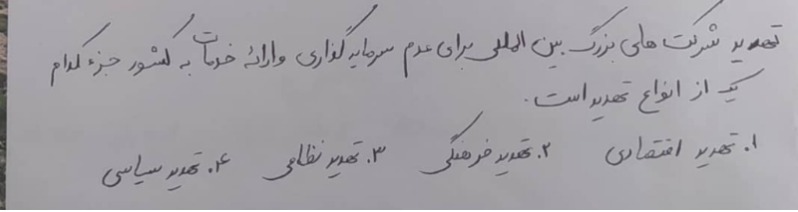 تهدید شرکت های بزرگ بین المللی برای عدم سرمایه گذاری و ارائه خدمات به کشور جزء کدام
یک از انواع تهدید است.
۱. تهدید اقتصادی ۲. تهدید فرهنگی ۳. تهدید نظامی ۴. تهدید سیاسی